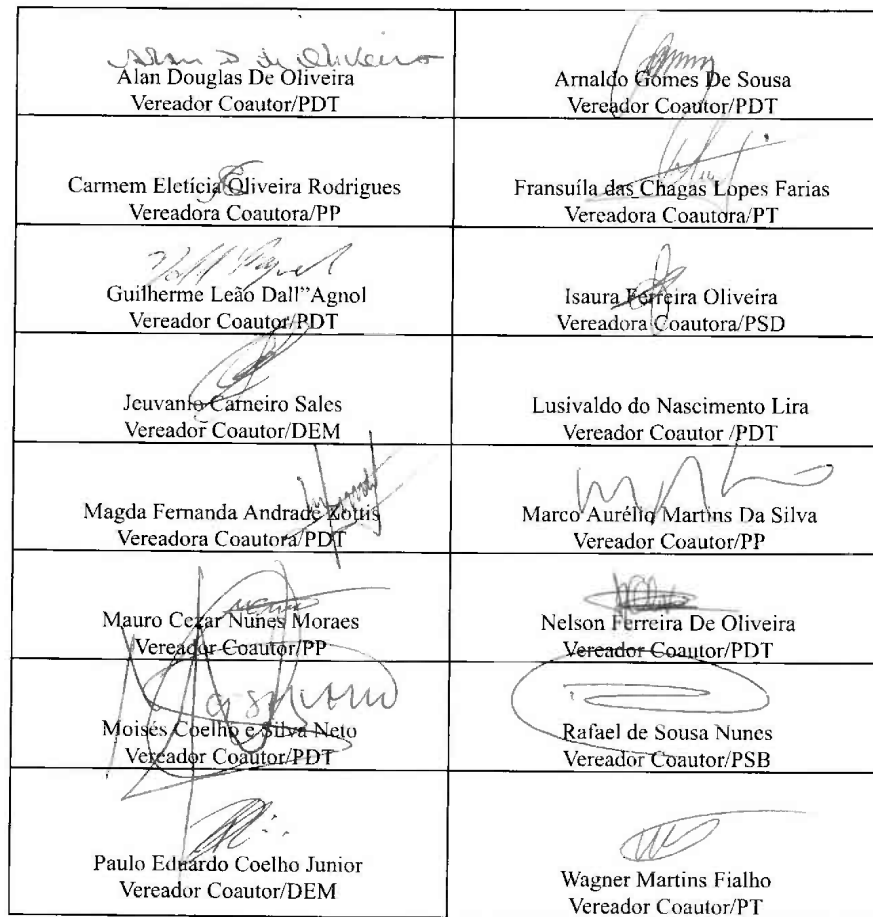 Alan D de Oliveira
Alan Douglas De Oliveira
Vereador Coautor/PDT
Arnaldo Gomes De Sousa
Vereador Coautor/PDT
Carmem Eletícia Oliveira Rodrigues
Vereadora Coautora/PP
Fransuíla das Chagas Lopes Farias
Vereadora Coautora/PT
Guilherme Leão Dall"Agnol
Vereador Coautor/PDT
Isaura Ferreira Oliveira
Vereadora Coautora/PSD
Jeuvanio Carneiro Sales
Vereador Coautor/DEM
Lusivaldo do Nascimento Lira
Vereador Coautor /PDT
Magda Fernanda Andrade Zottis
Vereadora Coautora/PDT
Marco Aurélio Martins Da Silva
Vereador Coautor/PP
Mauro Cezar Nunes Moraes
Vereador Coautor/PP
Nelson Ferreira De Oliveira
Vereador Coautor/PDT
Moisés Coelho e Silva Neto
Vereador Coautor/PDT
Rafael de Sousa Nunes
Vereador Coautor/PSB
Paulo Eduardo Coelho Junior
Vereador Coautor/DEM
Wagner Martins Fialho
Vereador Coautor/PT